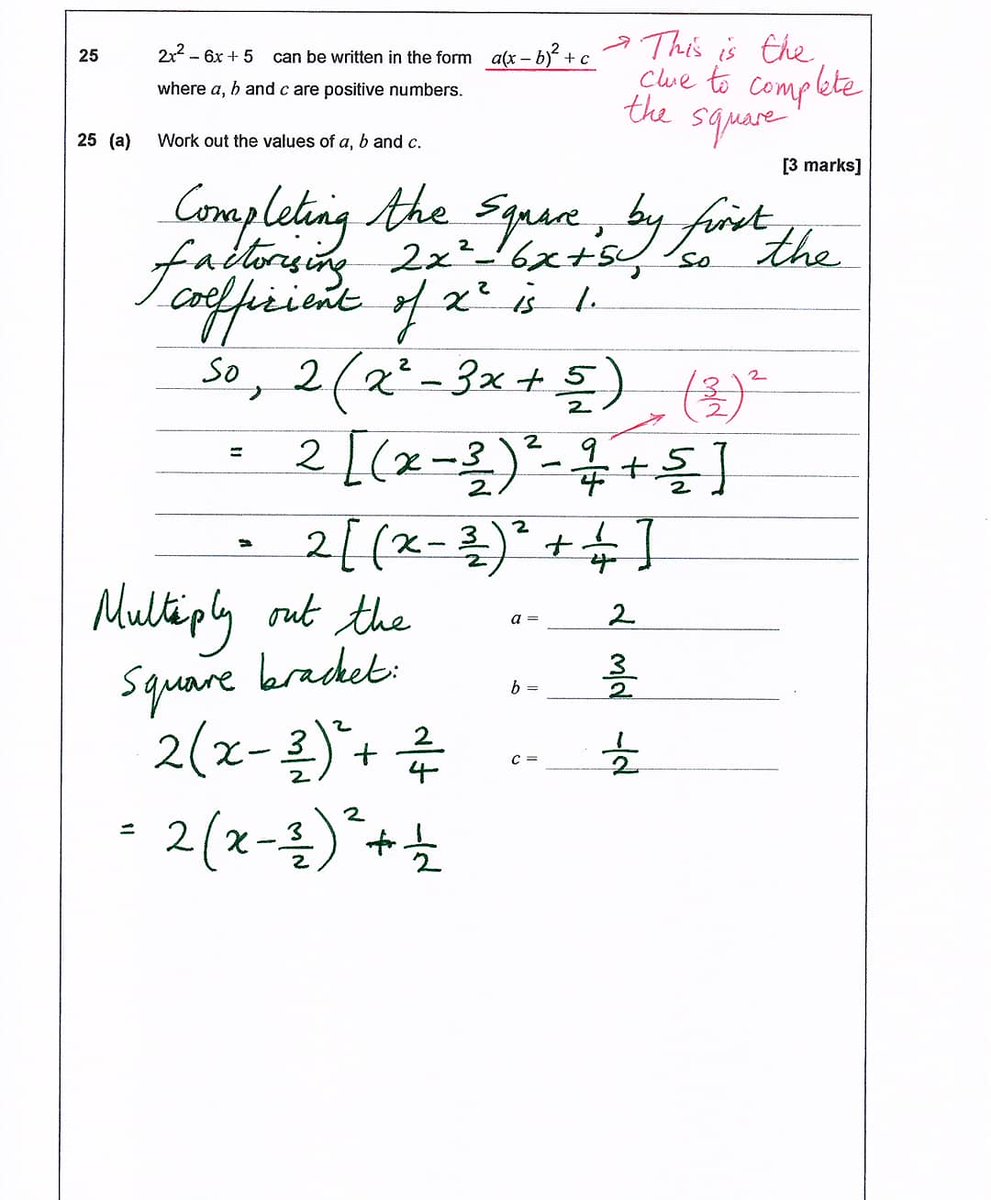 25 2x² – 6x + 5 can be written in the form a(x – b)² + c → This is the
where a, b and c are positive numbers. clue to complete
the square
25 (a) Work out the values of a, b and c.
[3 marks]
Completing the square, by first
factorising 2x² - 6x + 5, so the
coefficient of x² is 1.
So, 2(x² - 3x + 5/2) (3/2)²
= 2[(x - 3/2)² - 9/4 + 5/2]
= 2[(x - 3/2)² + 1/4]
Multiply out the
square bracket:
2(x - 3/2)² + 2/4
= 2(x - 3/2)² + 1/2
a = 2
b = 3/2
c = 1/2